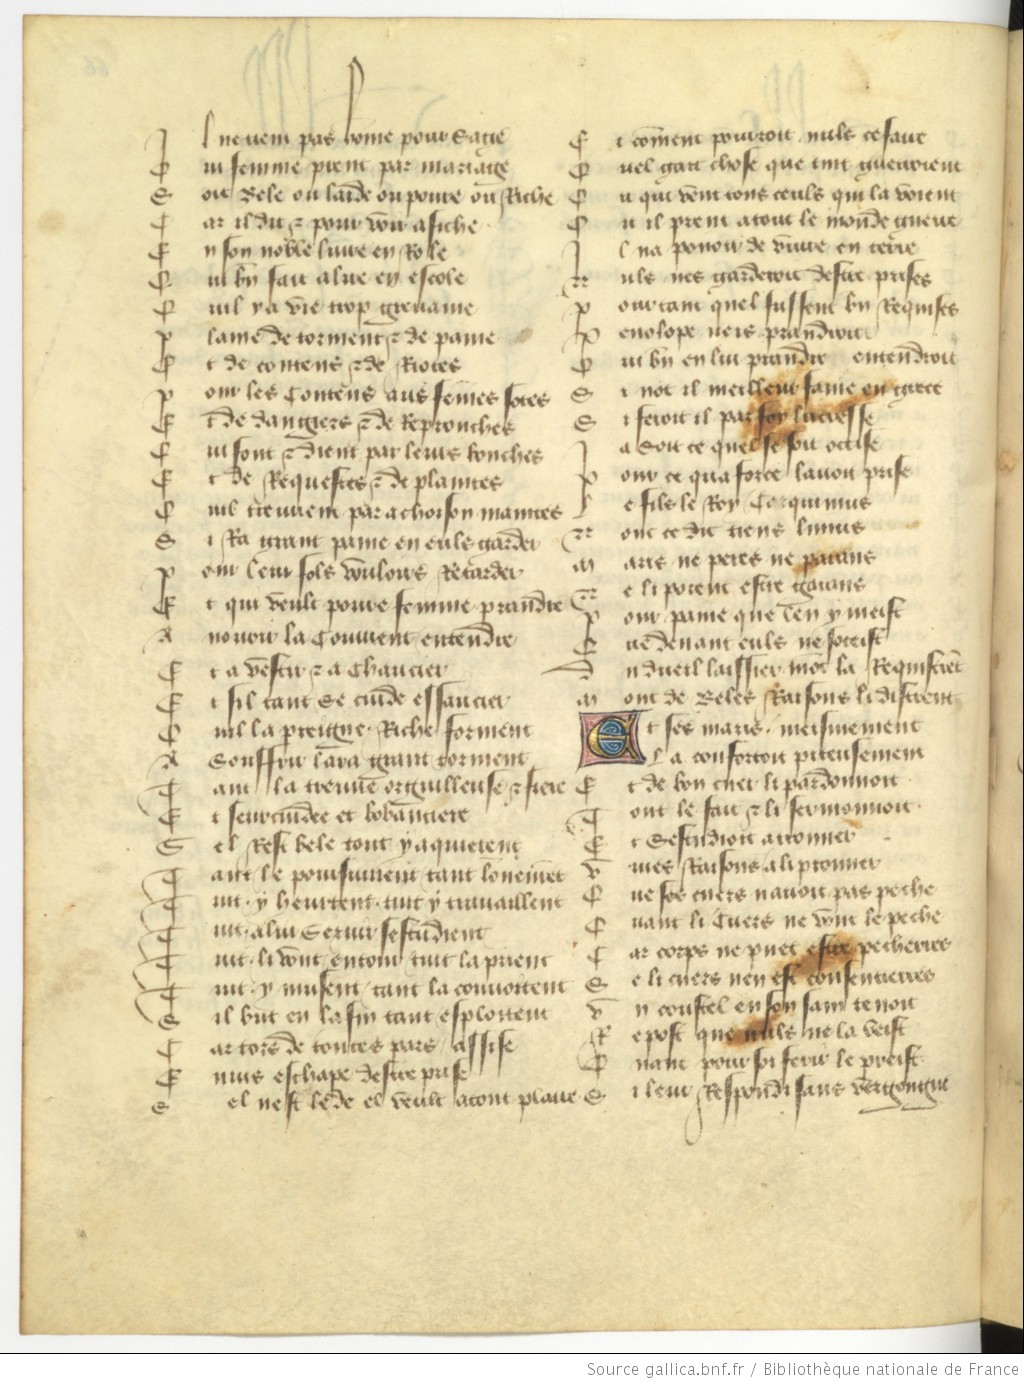 Il ne vient pas home pour sage
Qui femme prent par mariage
Soit bele ou laide ou povre ou Riche
Car il dit et pour voir afiche
En son noble livre en Role
Qui bñ fait a lire en escole
Quil y a vie trop grevaine
Plaine de torment et de paine
Et de contens et de Riotes
Pour les Contens aus femes sotes
Et de dangiers et de Reprouches
Qui font et dient par leurs bouches
Et de Requestes et de plaintes
Quil treuvent par achoison maintes
Si Ra grant paine en eules garder
Pour leur fols vouloirs Retarder
Et qui veult povre femme prandre
A norrir la Couvient entendre
Et a vestir et a Chaucier
Et sil tant se cuide essaucier
Quil la preigne Riche forment
A Souffrir laura grant torment
Tant la treuve orguilleuse et fiere
Et seurcuidee et bobanciere
Sel Rest bele tout y aqueurent
Tuit y heurtent tuit y travaillent
Tuit a lui Servir sestudient
Tuit li vont entour tuit la prient
Tuit y musent tant la couvoitent
Sil lont en la fin tant esploitent
Car tors de toutes pars assise
Enuis eschape destre prise
Sel nest bele el veult a touz plaire
Et coment pourroit nuls ce faire
Quel gart chose que tuit guerroient
Ou qui veut touz ceuls qui la voient
Sil prent a tout le monde guerre
Il na povoir de vivre en terre
Nuls nes garderoit destre prises
Pour tant quel fussent bñ Requises
Penolope neis prandroit
Qui bñ en lui prandre entendroit
Si not il meilleur fame en grece
Si feroit il par foy lucresse
Ja Soit ce quel se soit occise
Pour ce qua force lavoit prise
Le fils le Roy Torquinius
Nonc ce dit titus livius
Maris ne peres ne parans
Ne li porent estre garans
Pour paine que len y meist
Que devant eulz ne soccist
Du dueil laissier mõt la Requistrēt
Mout de beles Raisons li distrent
Et ses maris meismement
La confortoit piteusement
Et de bon cuer li pardonnoit
Tout le fait et li sermonnoit
Et Sestudioit a trouver
Vives Raisons a li prouver
Que ses cuers navoit pas pechie
Quant li Cuers ne voult le pechie
Car corps ne puet estre pecherres
Se li cuers nen est consentierres
Un coustel en son sain tenoit
Repost que nuls ne la veist
Quant pour soi ferir le preist
Si leur Respondi sans vergongne
Source gallica.bnf.fr / Bibliothèque nationale de France